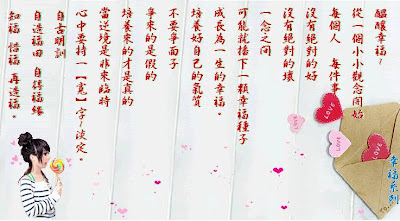 醞釀幸福~
從一個小小觀念開始
每個人 每件事
沒有絕對的好
沒有絕對的壞
一念之間
可能就播下一顆幸福種子
成長為一生的幸福。
培養好自己的氣質
不要爭面子
爭來的是假的
培養來的才是真的
當逆境是非來臨時
心中要持一【寬】字/淡定。
自古明訓
自造福田 自得福緣
知福 惜福 再造福。
LOVE
LOVE
LOVE
幸福系列